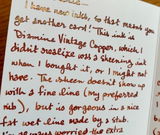 I have new inks, so that means you
get another card! This ink is
Diamine Vintage Copper, which I
didn't realize was a sheening ink
when I bought it, or I might not
have. The sheen doesn't show up
with a fine line (my preferred
nib), but is gorgeous in a nice
fat wet line made by a stub.
I'm worried the extra